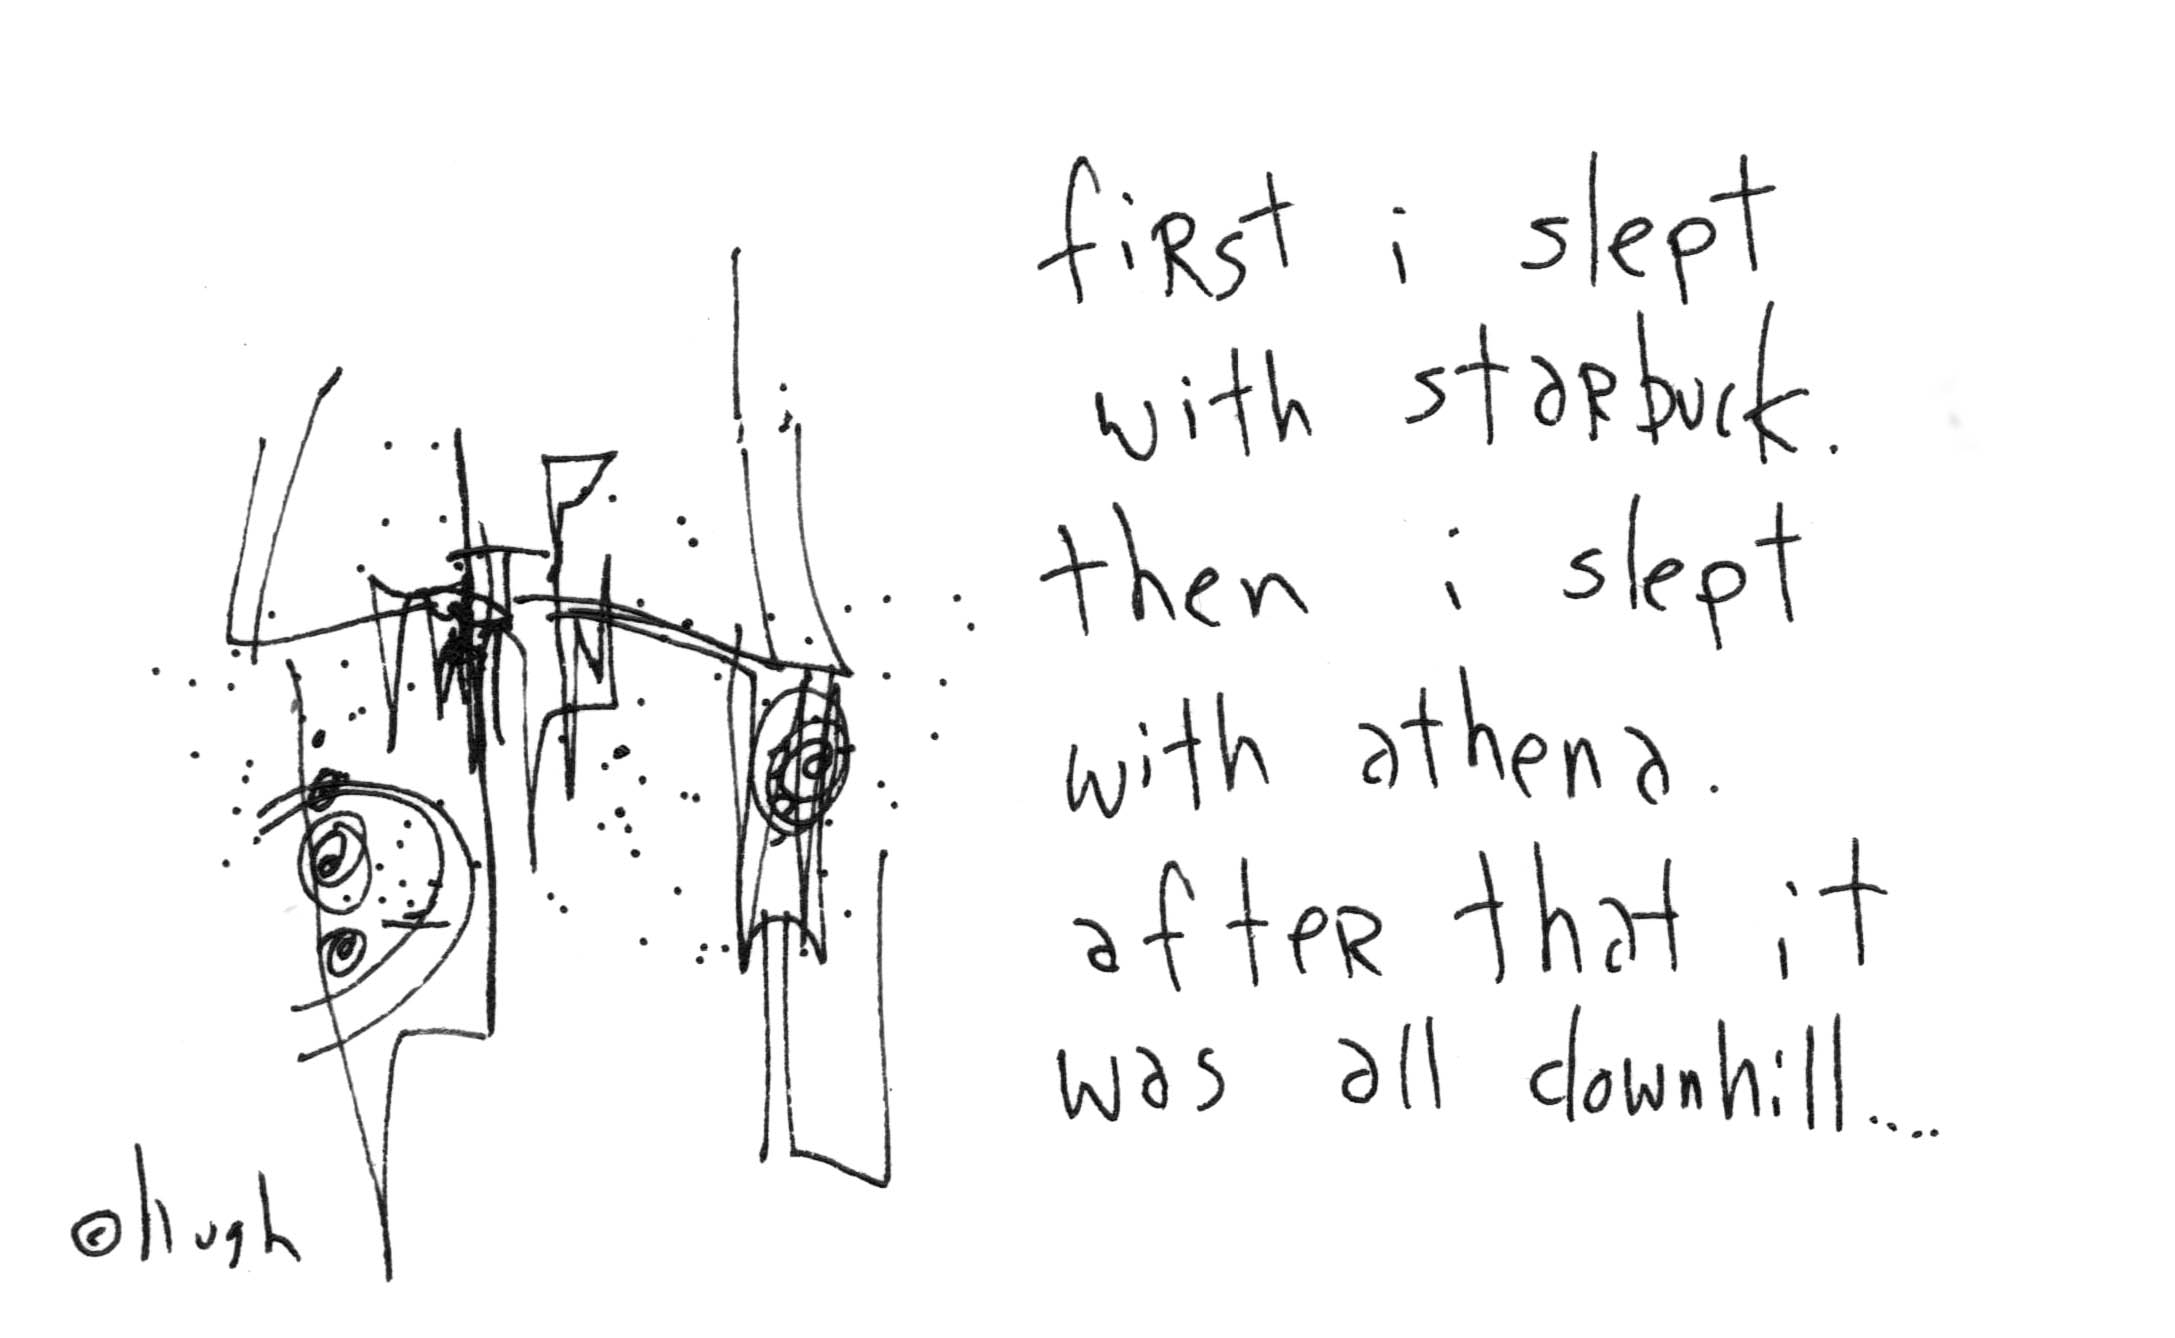 first i slept
with starbuck.
then i slept
with athena.
after that it
was all downhill....
©hugh